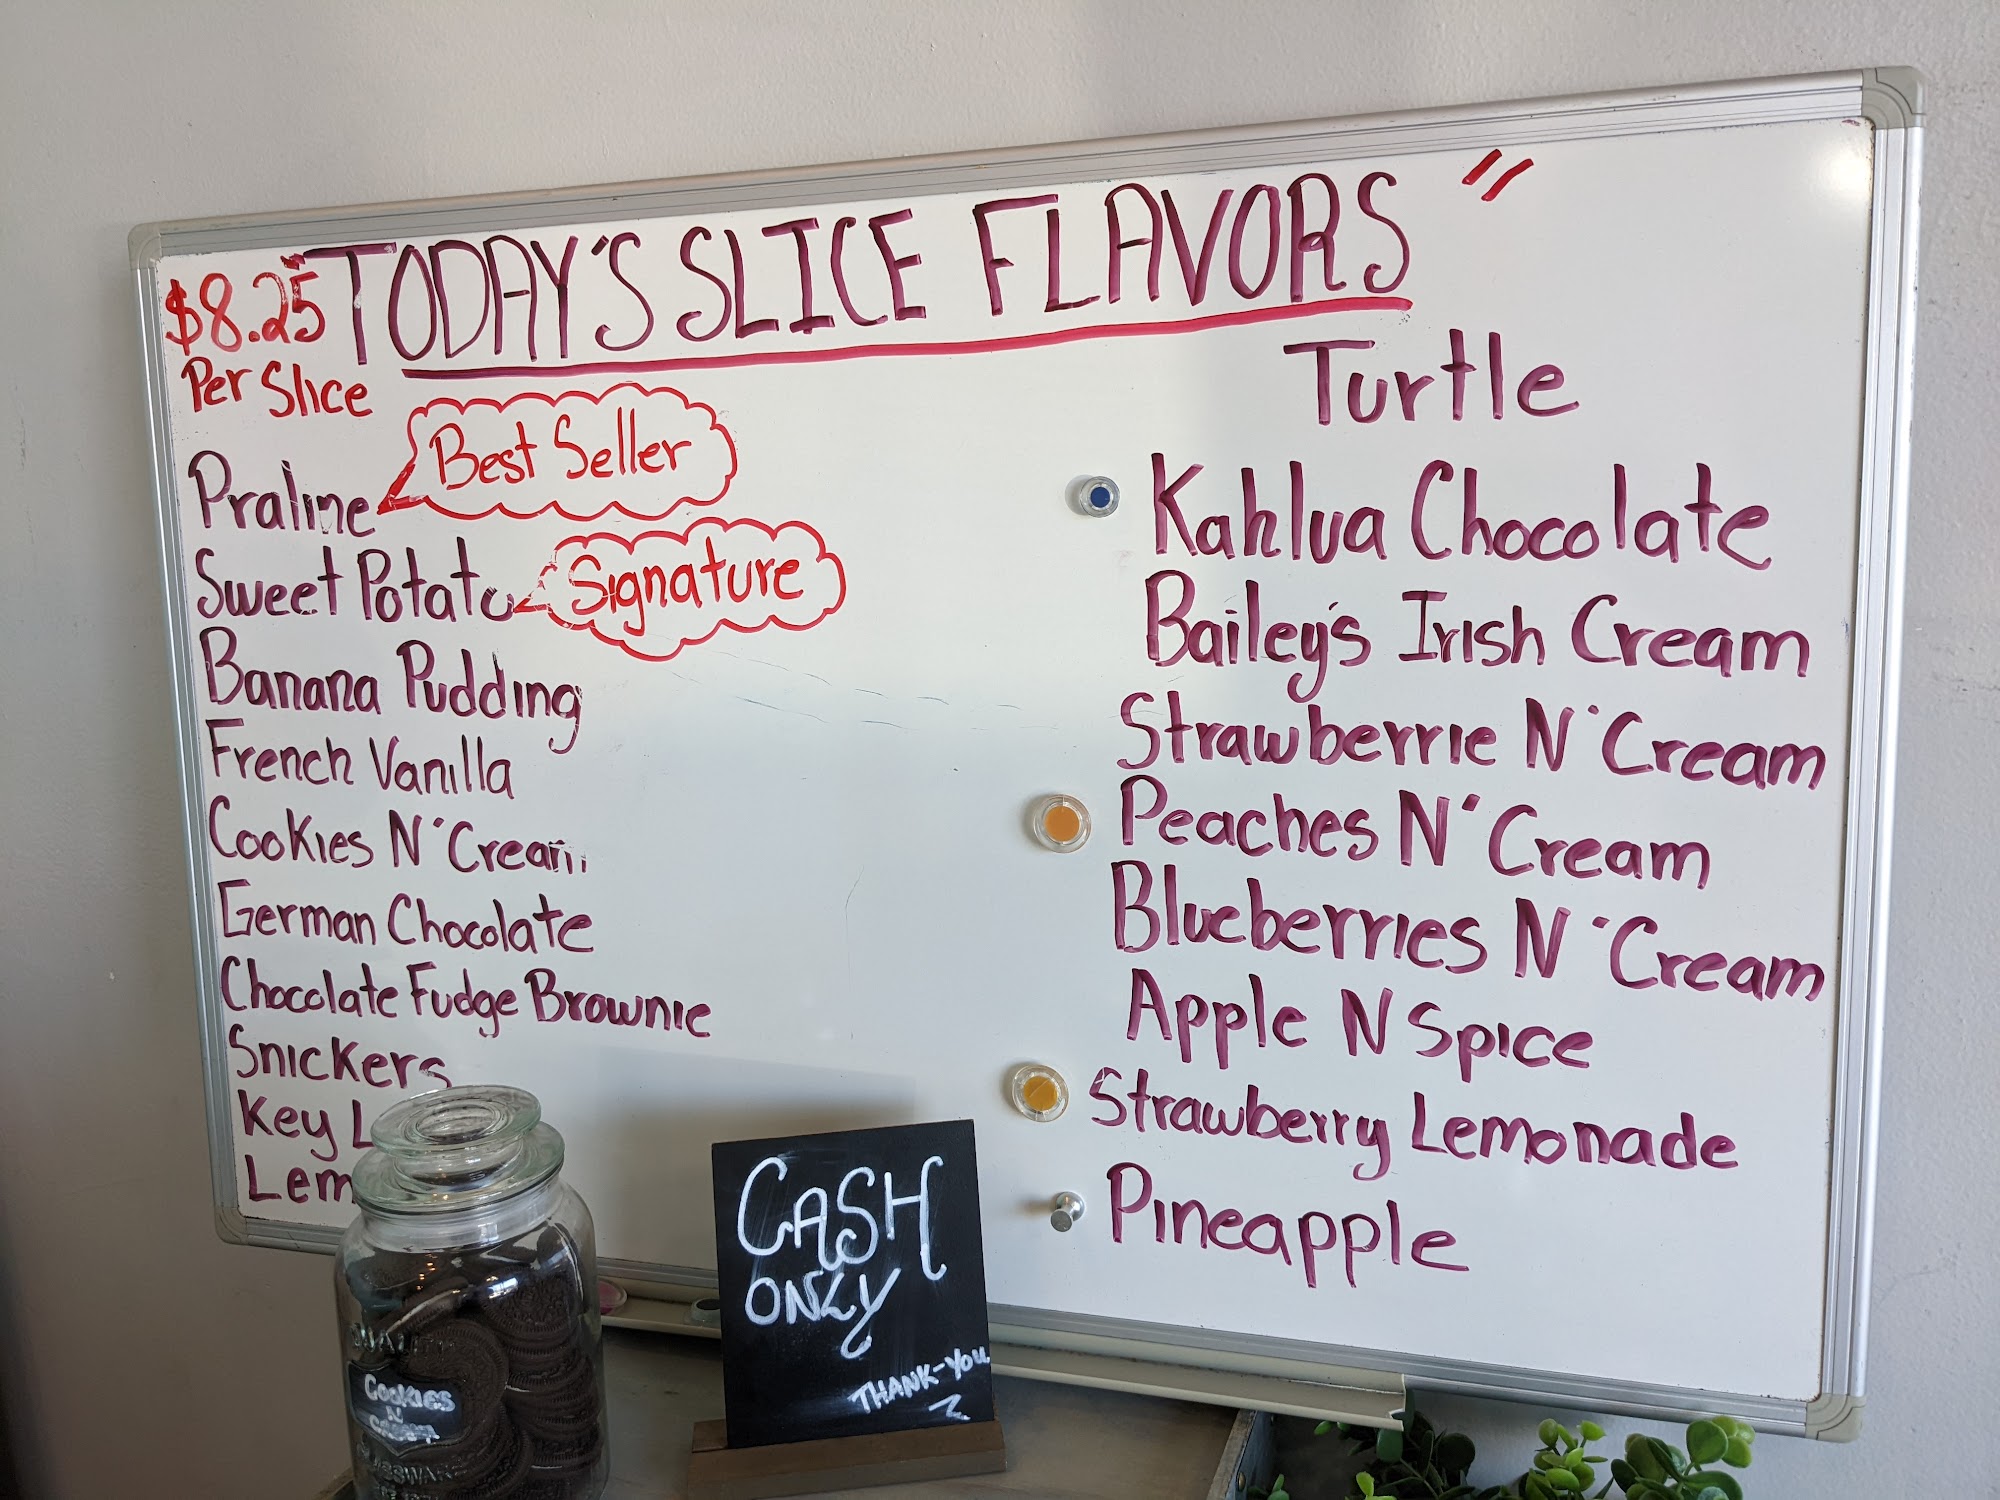 "TODAY'S SLICE FLAVORS"
$8.25
Per Slice
Praline
Best Seller
Sweet Potato
Signature
Banana Pudding
French Vanilla
Cookies N' Cream
German Chocolate
Chocolate Fudge Brownie
Snickers
Key L
Lem
Turtle
Kahlua Chocolate
Bailey's Irish Cream
Strawberrie N' Cream
Peaches N' Cream
Blueberries N' Cream
Apple N Spice
Strawberry Lemonade
Pineapple
CASH
ONLY
THANK-YOU
COOKIES
N